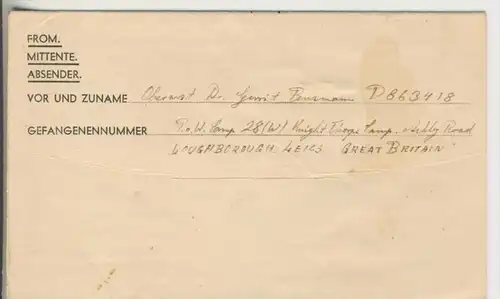 FROM.
MITTENTE.
ABSENDER.
VOR UND ZUNAME Oberarzt Dr. Gerrit D863418
GEFANGENENNUMMER P.o.W. Camp 28(W) Knight Thorpe Camp, Road
LOUGHBOROUGH LEICS GREAT BRITAIN